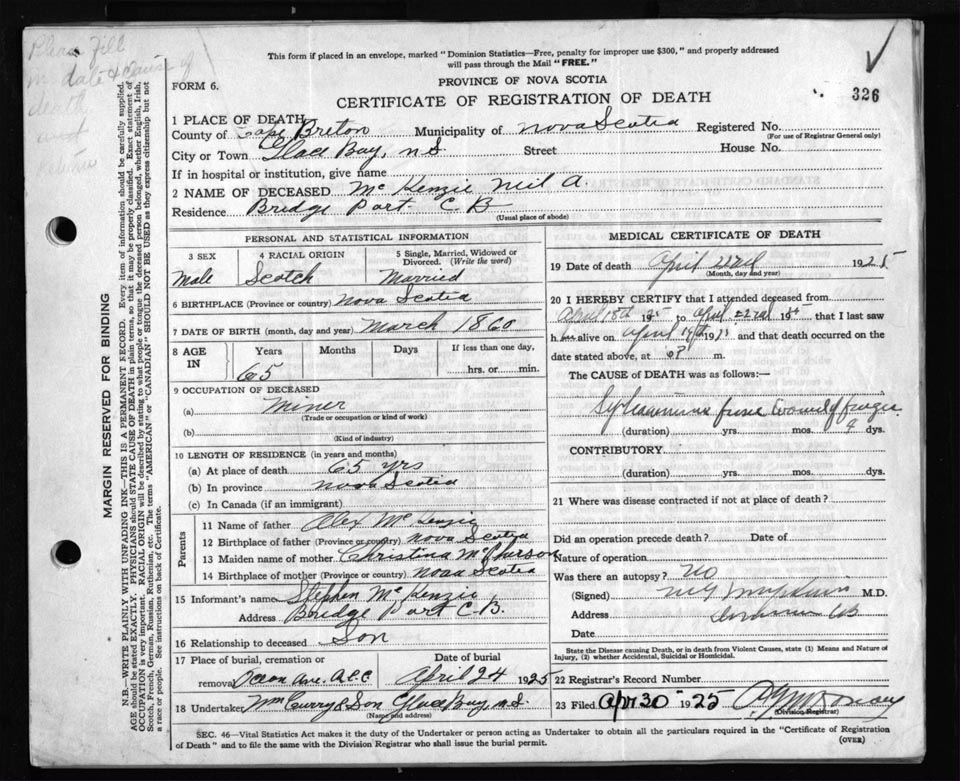 Please Fill
in date & cause of
death
and
return
This form if placed in an envelope, marked "Dominion Statistics—Free, penalty for improper use $300," and properly addressed
will pass through the Mail "FREE."
FORM 6.
PROVINCE OF NOVA SCOTIA
CERTIFICATE OF REGISTRATION OF DEATH
326
1 PLACE OF DEATH
County of Cape Breton Municipality of Nova Scotia Registered No.
(For use of Registrar General only)
City or Town Glace Bay, N.S. Street House No.
If in hospital or institution, give name
2 NAME OF DECEASED Mc Kenzie Neil A.
Residence Bridge Port C B
(Usual place of abode)
PERSONAL AND STATISTICAL INFORMATION
3 SEX 4 RACIAL ORIGIN 5 Single, Married, Widowed or Divorced. (Write the word)
Male Scotch Married
6 BIRTHPLACE (Province or country) Nova Scotia
7 DATE OF BIRTH (month, day and year) March 1860
8 AGE IN Years Months Days If less than one day,
65 hrs. or min.
9 OCCUPATION OF DECEASED
(a) Miner
(Trade or occupation or kind of work)
(b)
(Kind of industry)
10 LENGTH OF RESIDENCE (in years and months)
(a) At place of death 65 yrs
(b) In province Nova Scotia
(c) In Canada (if an immigrant)
Parents
11 Name of father Alex Mc Kenzie
12 Birthplace of father (Province or country) Nova Scotia
13 Maiden name of mother Christina McPhurson
14 Birthplace of mother (Province or country) Nova Scotia
15 Informant's name Stephen Mc Kenzie
Address Bridge Port C.B.
16 Relationship to deceased Son
17 Place of burial, cremation or Date of burial
removal Ocean Ave. April 24 1925
18 Undertaker Wm Curry & Son Glace Bay, N.S.
(Name and address)
MEDICAL CERTIFICATE OF DEATH
19 Date of death April 22nd 1925
(Month, day and year)
20 I HEREBY CERTIFY that I attended deceased from
April 18th 19 to April 22nd 19 that I last saw
h alive on April 19 and that death occurred on
date stated above, at m.
The CAUSE of DEATH was as follows:—
from wound of finger
(duration) yrs. mos. 9 dys.
CONTRIBUTORY
(duration) yrs. mos. dys.
21 Where was disease contracted if not at place of death?
Did an operation precede death? Date of
Nature of operation
Was there an autopsy? No
(Signed) M.D.
Address
Date
State the Disease causing Death, or in death from Violent Causes, state (1) Means and Nature of
Injury, (2) whether Accidental, Suicidal or Homicidal.
22 Registrar's Record Number
23 Filed Apr 30 1925
(Division Registrar)
SEC. 46—Vital Statistics Act makes it the duty of the Undertaker or person acting as Undertaker to obtain all the particulars required in the "Certificate of Registration
of Death" and to file the same with the Division Registrar who shall issue the burial permit.
(OVER)
MARGIN RESERVED FOR BINDING
N.B.—WRITE PLAINLY WITH UNFADING INK—THIS IS A PERMANENT RECORD. Every item of information should be carefully supplied.
AGE should be stated EXACTLY. PHYSICIANS should STATE CAUSE OF DEATH in plain terms, so that it may be properly classified. Exact statement of
OCCUPATION is very important. RACIAL ORIGIN will be described by stating to what people or tongue the deceased person belonged, whether English, Irish,
Scotch, French, German, Russian, Ruthenian, etc. The terms "AMERICAN" or "CANADIAN" SHOULD NOT BE USED as they express citizenship but not
a race or people. See instructions on back of Certificate.